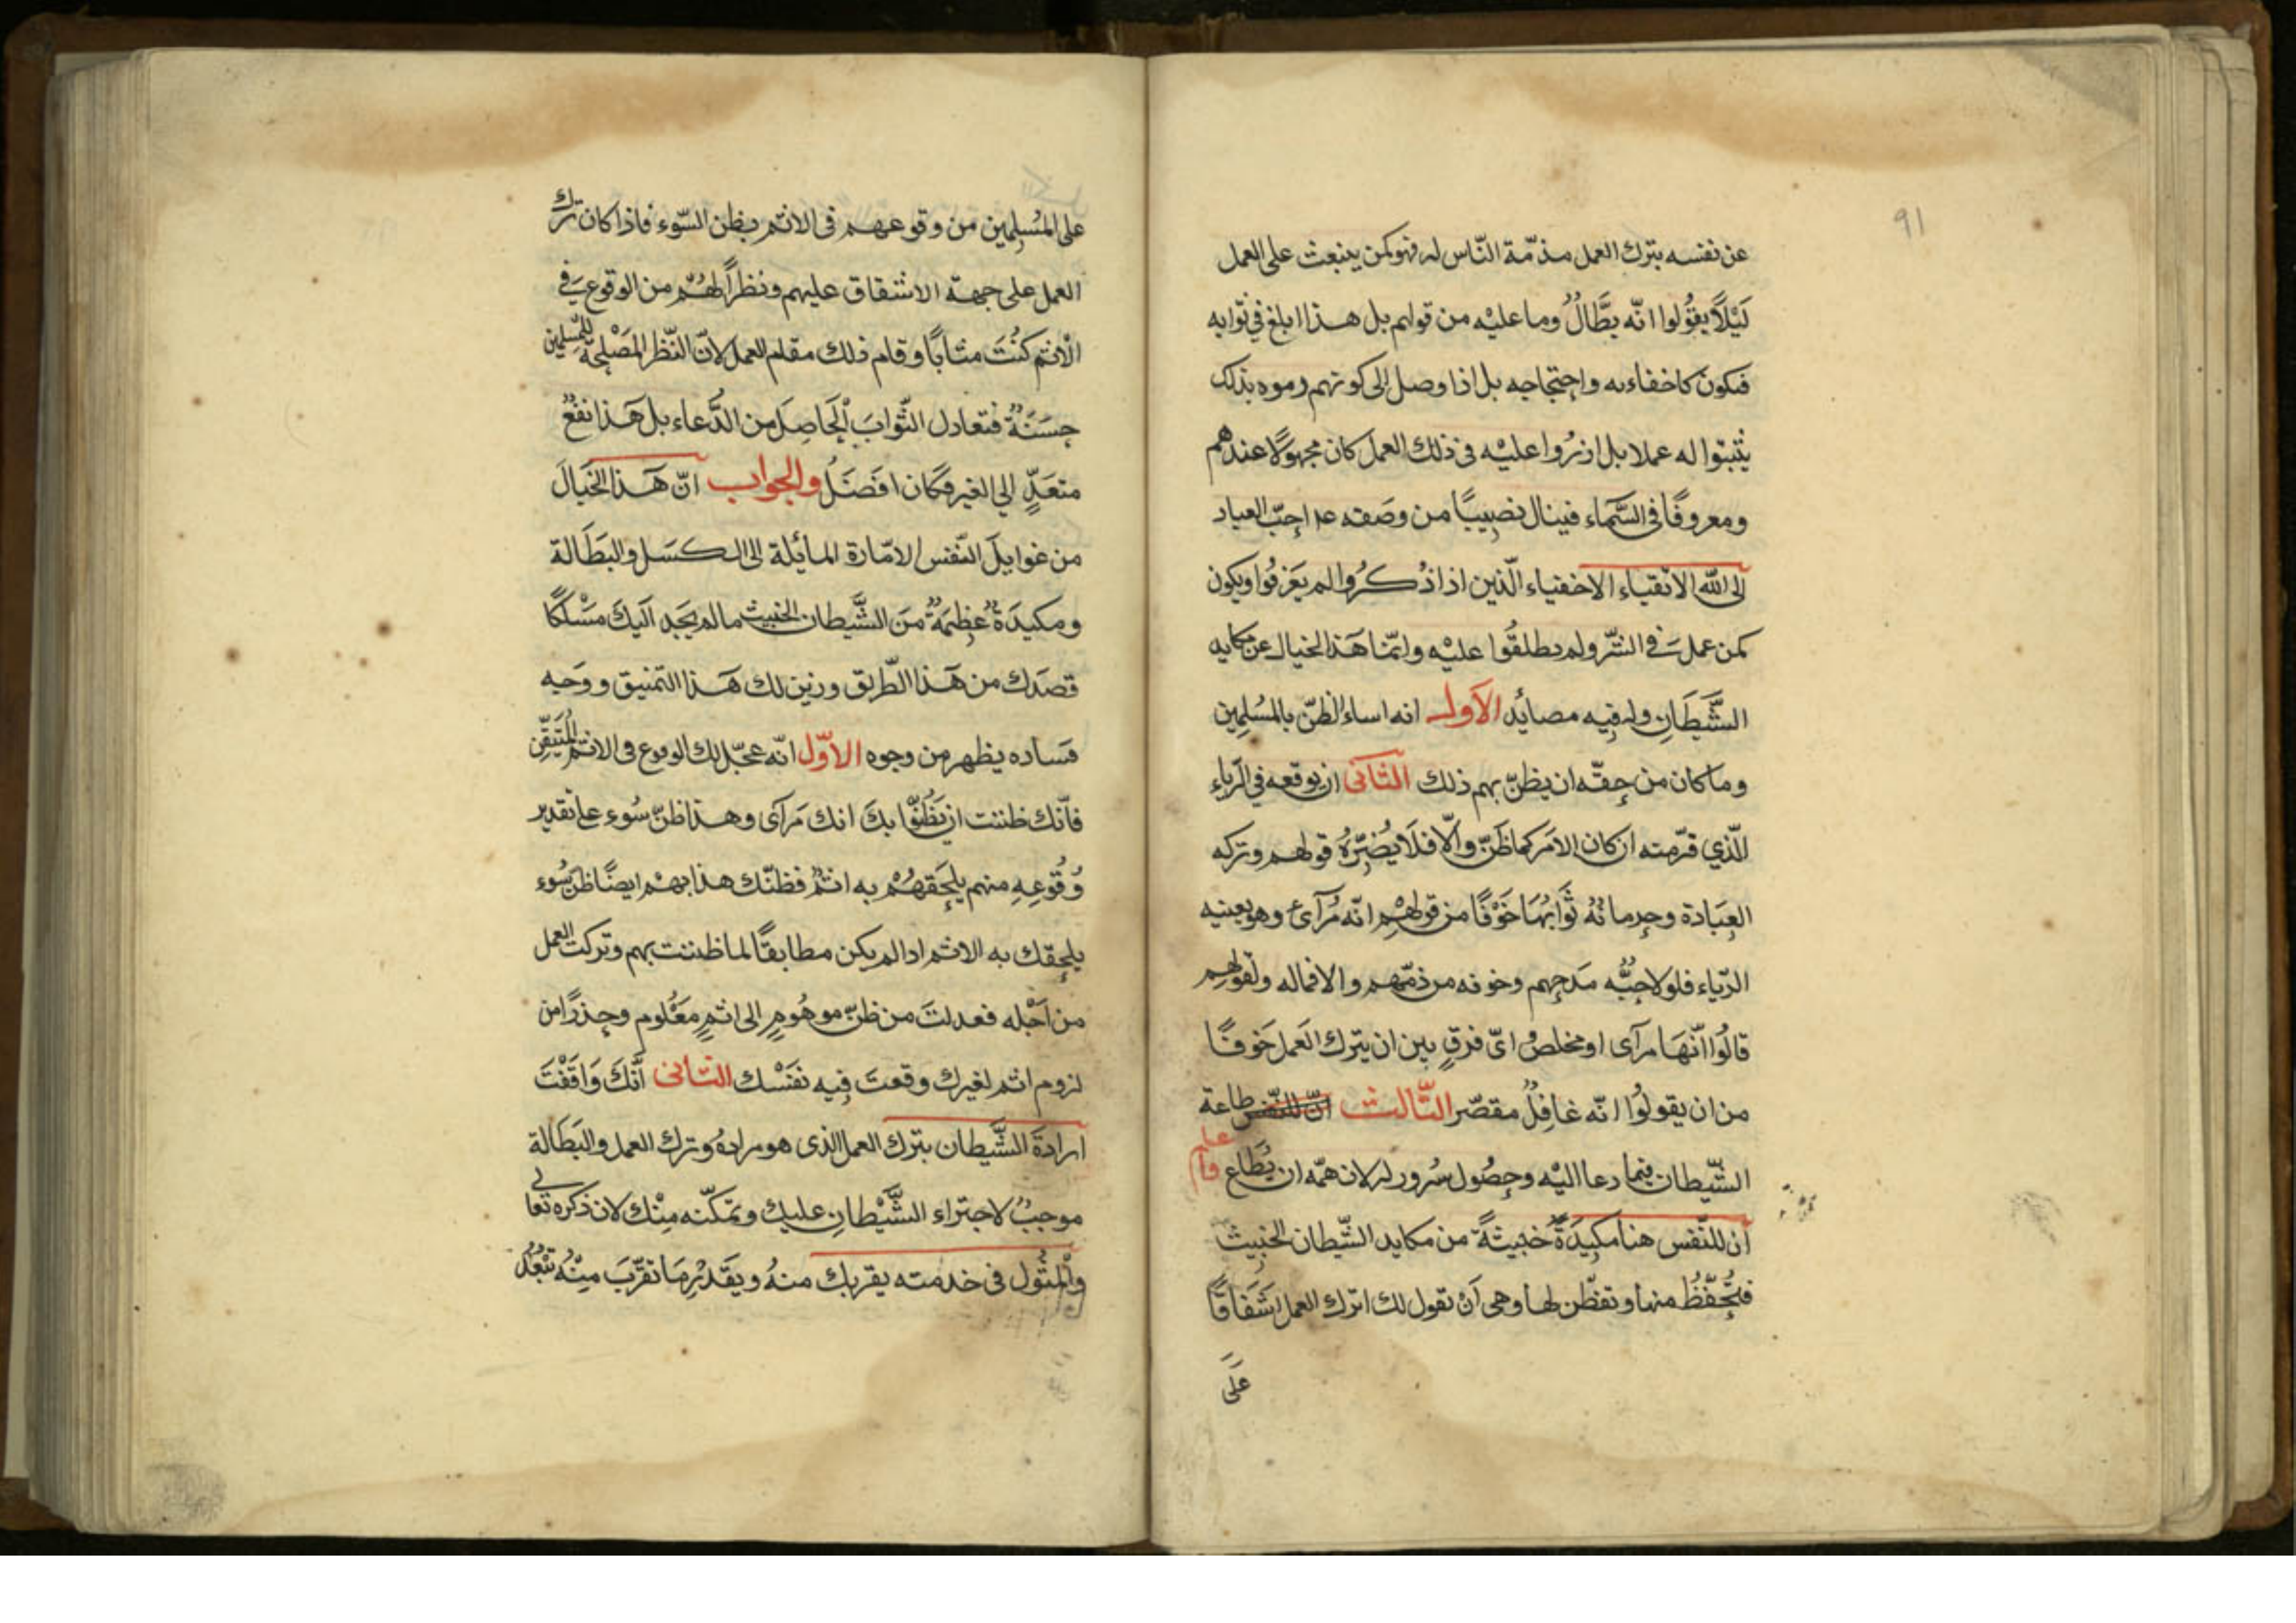 91
عن نفسه بترك العمل مذمّة النّاس له فهو كمن ينبعث على العمل
لَيْلَّا يقُولوا انّه بطَّالٌ وما عليْه من قولهم بل هذا ابلغ في ثوابه
فيكون كاخفاءه واحتجاجه بل اذا وصل الى كونهم رموه بذلك
يثبتوا له عملا بل ازرُوا عليْه فى ذلك العمل كان مجهولًا عندهم
ومعروفًا فى السَّمَاء فينال نصيبًا من وصَفه ع احبّ العباد
الى اللّه الاتقياء الاخفياء الّذين اذا ذُكرُوا لم يعَرفُوا ويكون
كمن عمل فى السّر ولم يطلعُوا عليْه وانّما هَذا الخيال من مكايد
الشَّيَطَانِ وله فيه مصائد الاول انه اساء الظنّ بالمسُلِمين
وما كان من حقّه ان يظنّ بهم ذلك الثانى ان يوقعه في الرّياء
الّذي قرّمته ان كان الامَر كما ظَنّ والّا فلَا يُضِرّهُ قولهم وتركه
العِبَادة وحرمانُهُ ثَوابُهَا خَوْفًا من قولهْم انّه مُرآى وهو بعينه
الرّياء فلولا حبُّه مَدحهم وخوفه من ذمّهم والا فماله ولقولهم
قالُوا انّهَا مرآى او مخلصُ اىّ فرقٍ بين ان يترك العَمل خَوفًا
من ان يقولوُا انّه غافِلُ مقصّر الثّالث انّ للنّفس طاعة
الشّيطان فيما دعا اليْه وحصُول سُرور له لان همّه ان يُطَاع
أن للنّفس هنا مكيدَةً خبيثةً من مكايد الشّيطان الخبيث
فتَحفّظُ منها وتفطّن لها وهى أن تقول لك اترك العمل اشَفاقًا
على
على المُسِلمِين من وقوعهم فى الاثم بظن السّوء فاذا كان ترك
العمل على جهة الاشفاق عليهم ونظرًا لهُم من الوقوع في
الْاثم كنُتَ مثابًا وقام ذلك مقام العمل لانّ النّظر المَصْلحة للمسلمين
حسَنَةُ فتعادل الثّوابَ الْحَاصِلَ من الدُّعاء بل هَذا نفعُ
متعَدٍّ الى الغير فكان افضَلُ والجواب انّ هَذا الخَيالَ
من غوايلَ النّفس الامّارة المائلة الى الكسَل والبَطَالة
ومكيدَةُ عظِيمَةُ منَ الشَّيطان الخبيث لما لم يَجَد الَيكَ مَسْلكًا
قصَدَك من هَذا الطّريق وزين لك هَذا التنميق ووَجه
فسَاده يظهر من وجوه الاوّل انّه عجّل لك الوقوع فى الاثم المُتيقّن
فانّك ظننت ان يَظُنّوُا بكَ انك مَرآى وهذا ظنّ سُوء على تقدير
وُقُوعِهِ منهم يلحَقهُمْ به اثمُ فظنّك هذا بهمْ ايضًا ظن سُوء
يلحقك به الاثم اذا لم يكن مطابقًا لما ظننت بهم وتركت العمل
من اَجْله فعدلتَ من ظنّ موهُومٍ الى اثمٍ معَلُومٍ وحذرًا من
لزوم اثم لغيرك وقعتَ فيِه نفسْك الثانى أنَّكَ وَافَقْتَ
ارادةَ الشَّيطان بترك العمل الذى هو مرادهُ وترك العمل والبَطالة
موجبُ لاجتراء الشَّيْطانِ عليك وتمكّنه منْك لان ذكره تعالى
والْمثُول فى خدمته يقربك منهُ ويقَدْرِ مَا تقرّبَ منْهُ تَبْعُدُ